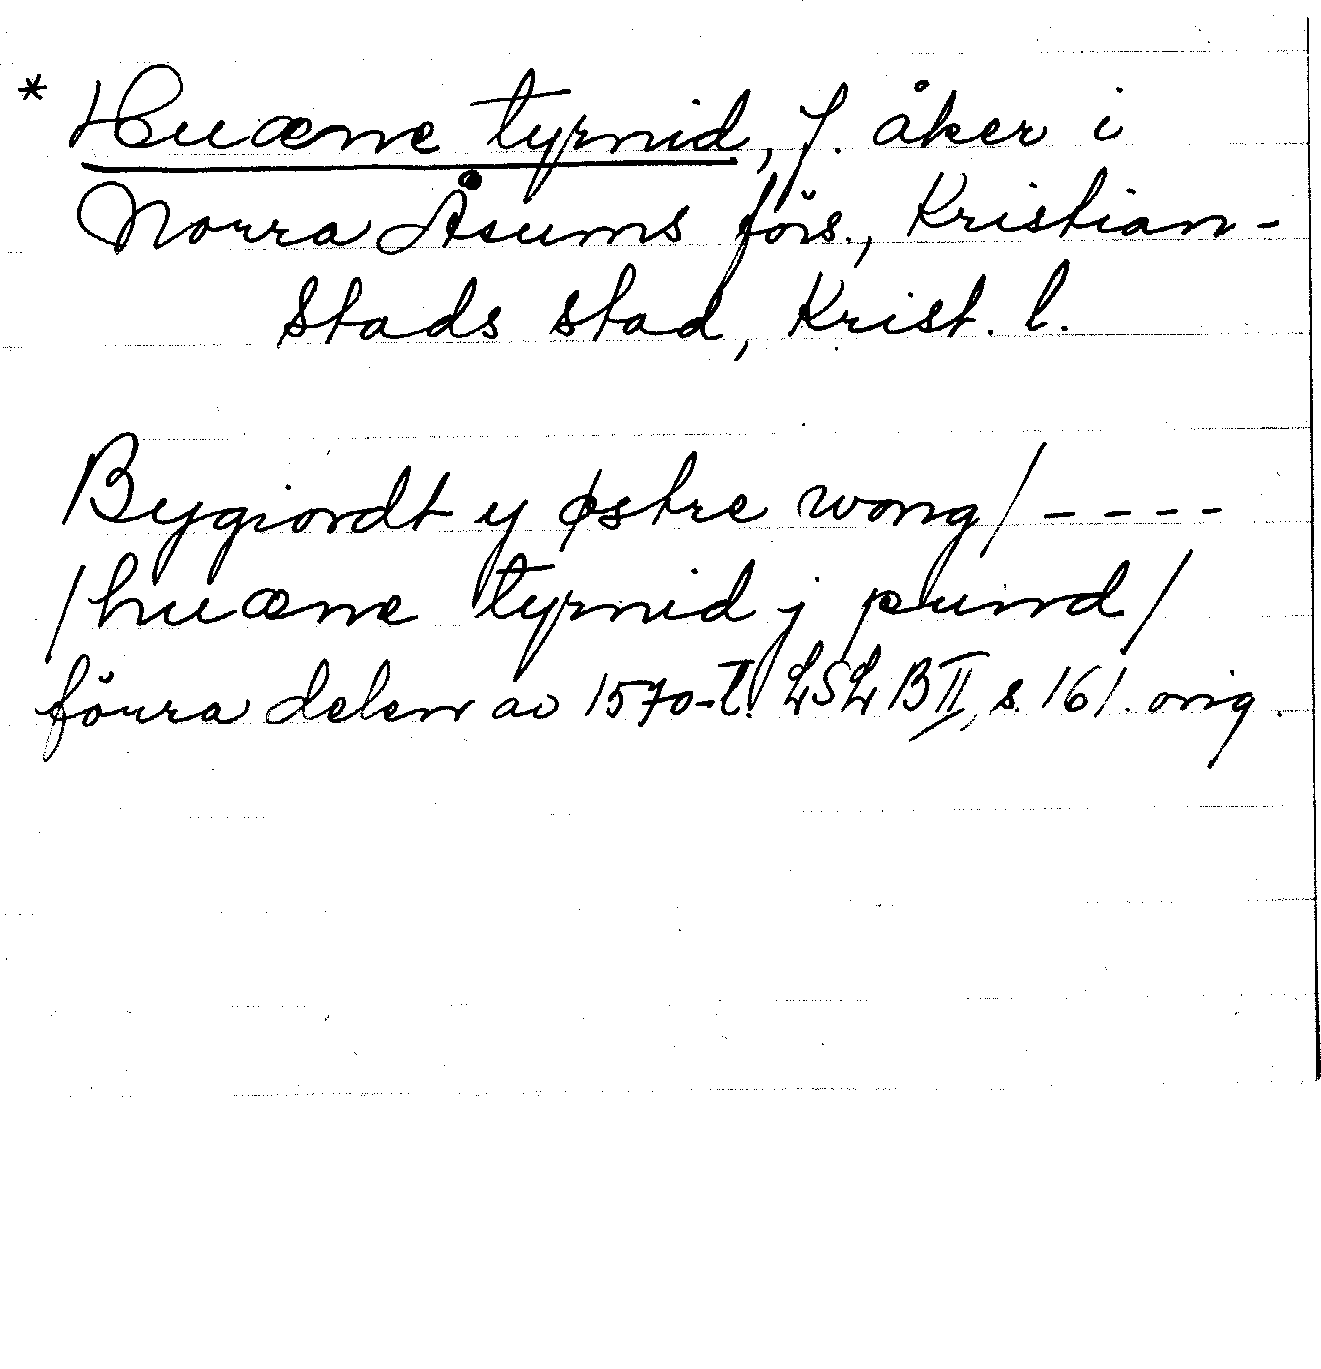 * Huæne tyrnid, f. åker i
Norra Åsums förs., Kristian-
stads stad, Krist. l.
Bygiordt y østre wong / ----
/ huæne tyrnid j pund /
förra delen av 1570-t. LSL B II, s. 161. orig.